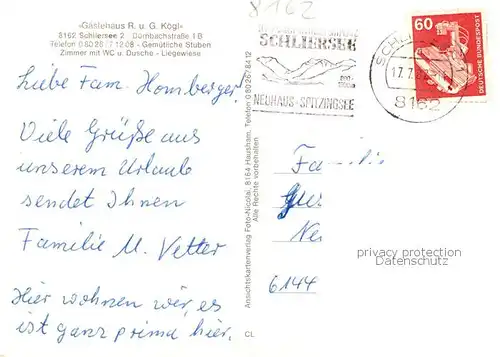 «Gästehaus R. u. G. Kögl»
8162 Schliersee 2 Dürnbachstraße 1B
Telefon 08026/71208 - Gemütliche Stuben
Zimmer mit WC u. Dusche - Liegewiese
Liebe Fam. Homberger.
Viele Grüße aus
unserem Urlaub
sendet Ihnen
Familie M. Vetter
Hier wohnen wir, es
ist ganz prima hier.
Ansichtskartenverlag Foto-Nicolai, 8164 Hausham, Telefon 08026/8412
Alle Rechte vorbehalten
CL
8162
SCHLIERSEE
800-
NEUHAUS-SPITZINGSEE
17.7.
8162
60
DEUTSCHE BUNDESPOST
Familie
6144
privacy protection
Datenschutz